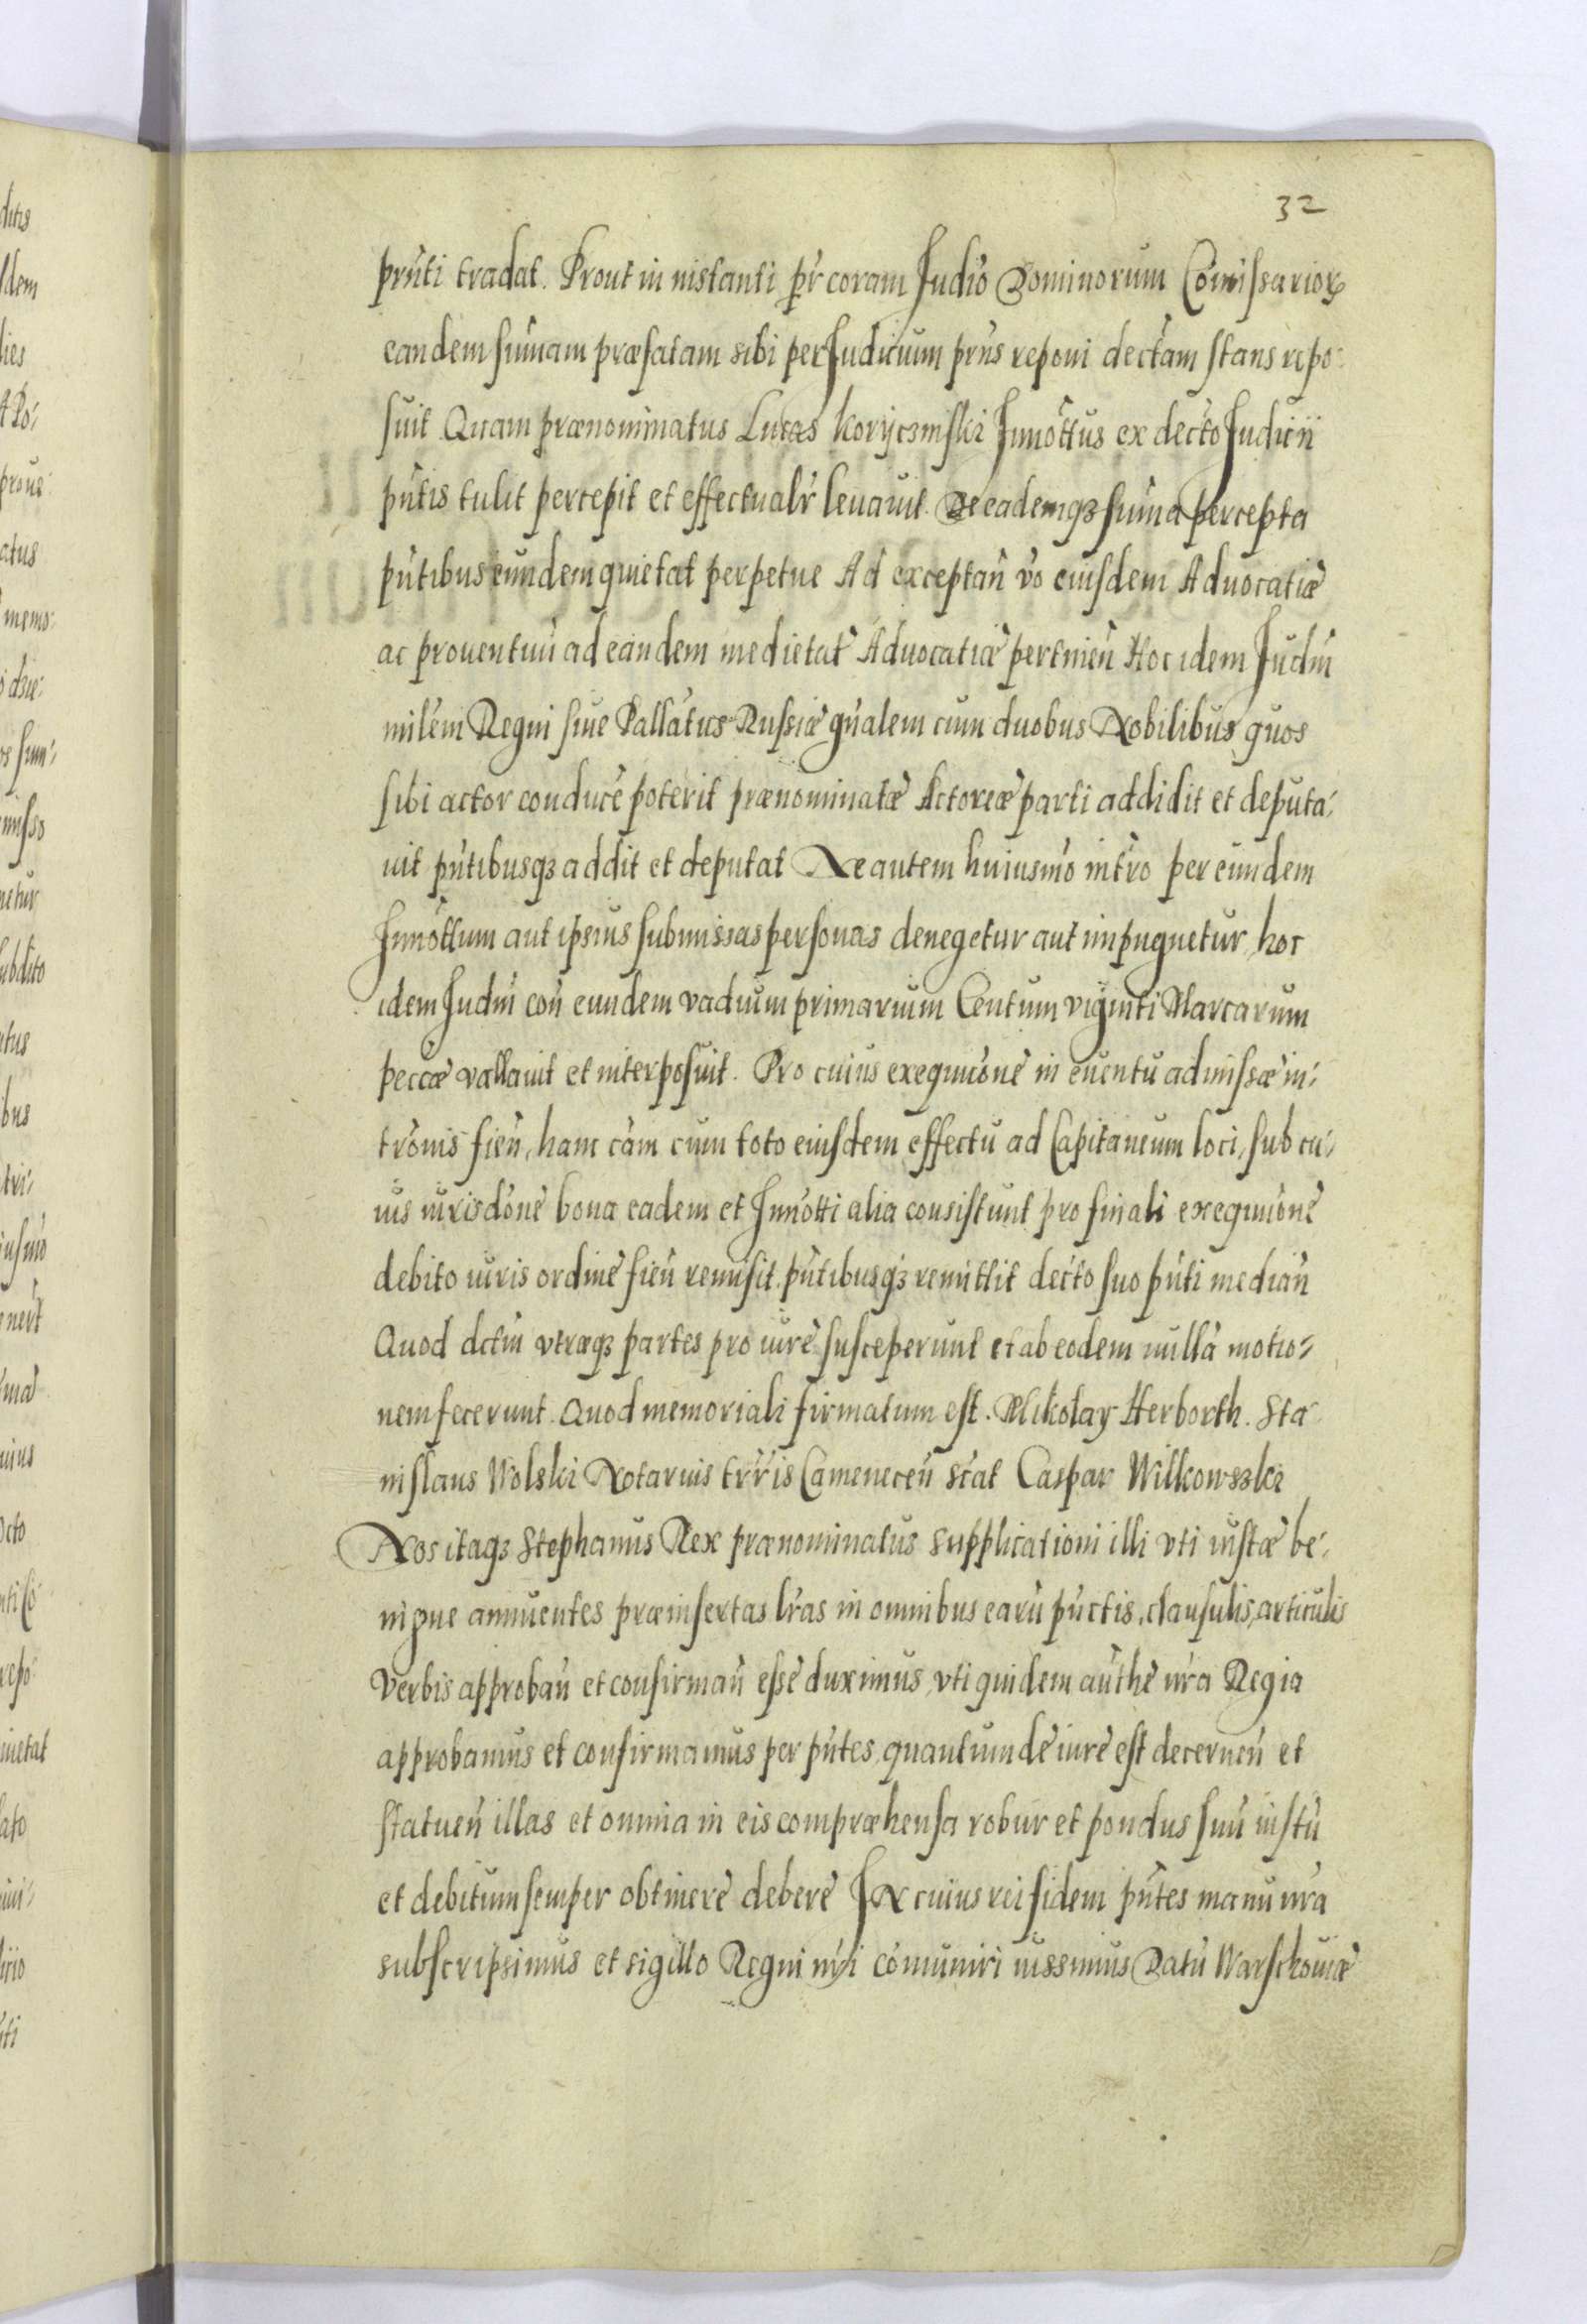 32
prn̄ti tradat. Prout in nistanti pr̄ coram Judīo Dominorum Com̄issarior
eandem sum̄am præfatam sibi per Judicium prn̄s reponi dectam stans repo-
suit Quam prænominatus Lucas Koryczinski Innottus ex decto Judicii
pn̄tis tulit percepit et effectualr̄ levavit. De eademqз sum̄a percepta
pn̄tibus eundem quietat perpetue Ad exceptan̄ vo eiusdem Advocatiæ
ac proventuu̅ ad eandem medietat̄ Advocatiæ pertinen̄ Hoc idem Judm̄
milem Regni siue Pallatus Russiæ gn̄alem cum duobus Nobilibus quos
sibi actor conducē poterit prænominatæ Actoreæ parti addidit et deputa-
uit pn̄tibusqз addit et deputat Ne autem huiusmō intro per eundem
Innottum aut ipsius submissas personas denegetur aut impugnetur, hoc
idem Judm̄ con̄ eundem vadium primarium Centum viginti Marcarum
peccæ vallavit et interposuit. Pro cuius exequuc̄one in euentu admissæ in-
tronis fien̄, hanc cām cum toto eiusdem effectu ad Capitaneum loci, sub cu-
ius iurisdōne bona eadem et Innotti alia consistunt pro finali exequuōne
debito iuris ordine fien̄ remisit. pn̄tibusqз remittit decto suo pn̄ti median̄
Quod dctm̄ vtræqз partes pro iure susceperunt et ab eodem nullā motio-
nem fecerunt. Quod memoriali firmatum est. Mikolay Herborth. Sta
nislaus Wolski Notarius trr̄is Camenecen̄ scat Caspar Wilkowszki
Nos itaqз Stephanus Rex prænominatus supplicationi illi vti iustæ be-
nigne annuentes præinsertas lr̄as in omnibus earū pūctis, clausulis, articulis
Verbis approban̄ et confirman̄ esse duximus, vti quidem authē nr̄a Regia
approbamus et confirmamus per pn̄tes, quantum de iure est decernen̄ et
statuen̄ illas et omnia in eis compræhensa robur et pondus suū iustū
et debitum semper obtinere debere IN cuius rei fidem pn̄tes manu nr̄a
subscripsimus et sigillo Regni nr̄i comuniri iussimus Datū Warschouiæ